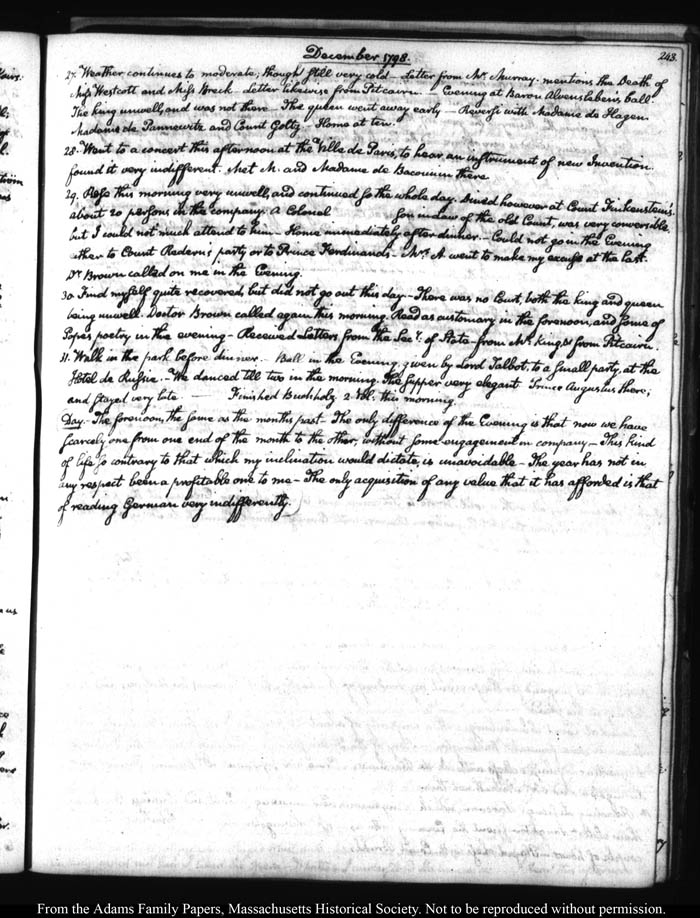 December 1798.
243.
27. Weather continues to moderate, though still very cold – Letter from Mr. Murray. mentions the Death of
Miss Westcott and Miss Breck – Letter likewise from Pitcairn. – Evening at Baron Alvensleben's ball
The king unwell, and was not there – The queen went away early – Reversi with Madame de Hagen
Madame de Pannewitz and Count Goltz – Home at ten.
28. Went to a concert this afternoon at the Ville de Paris, to hear an instrument of new Invention.
found it very indifferent. Met M. and Madame de Bacounin there
29. Rose this morning very unwell, and continued so the whole day. Dined however at Count Finkenstein's.
about 20 persons in the company. A Colonel son in law of the old Count, was very conversible,
but I could not much attend to him – Home immediately after dinner. – Could not go in the Evening
either to Count Redern's party or to Prince Ferdinand's – Mrs. A went to make my excuse at the last.
Dr. Brown called on me in the Evening.
30 Find myself quite recovered, but did not go out this day – There was no Court, both the king and queen
being unwell. Doctor Brown called again this morning. Read as customary in the forenoon, and some of
Popes poetry in the evening – Received Letters from the Secy. of State – from Mr. King & from Pitcairn.
31. Walk in the park before dinner. – Ball in the Evening given by Lord Talbot, to a small party, at the
Hôtel de Russie. – We danced till two in the morning. The supper very elegant Prince Augustus there;
and stayed very late. – Finished Bucholz 2. Vol. this morning
Day – The forenoon, the same as the months past – The only difference of the Evening is that now we have
scarcely one from one end of the month to the other, without some engagement in company – This kind
of life so contrary to that which my inclination would dictate, is unavoidable – The year has not in
any respect been a profitable one to me – The only acquisition of any value that it has afforded is that
of reading German very indifferently.
From the Adams Family Papers, Massachusetts Historical Society. Not to be reproduced without permission.